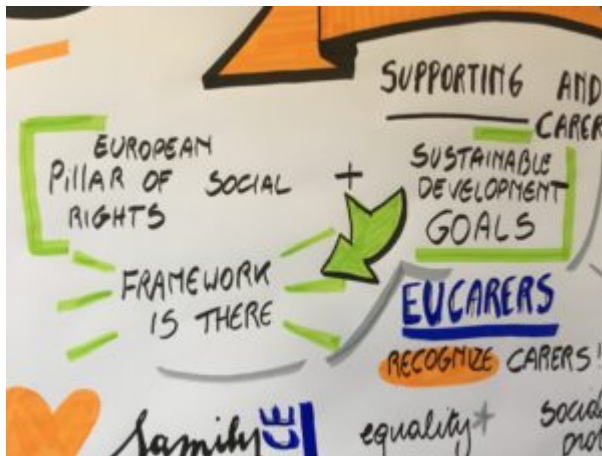 SUPPORTING AND
CARER
EUROPEAN
PILLAR OF SOCIAL
RIGHTS
+
SUSTAINABLE
DEVELOPMENT
GOALS
FRAMEWORK
IS THERE
EUCARERS
RECOGNIZE CARERS!
family
CE
equality*
social
prot